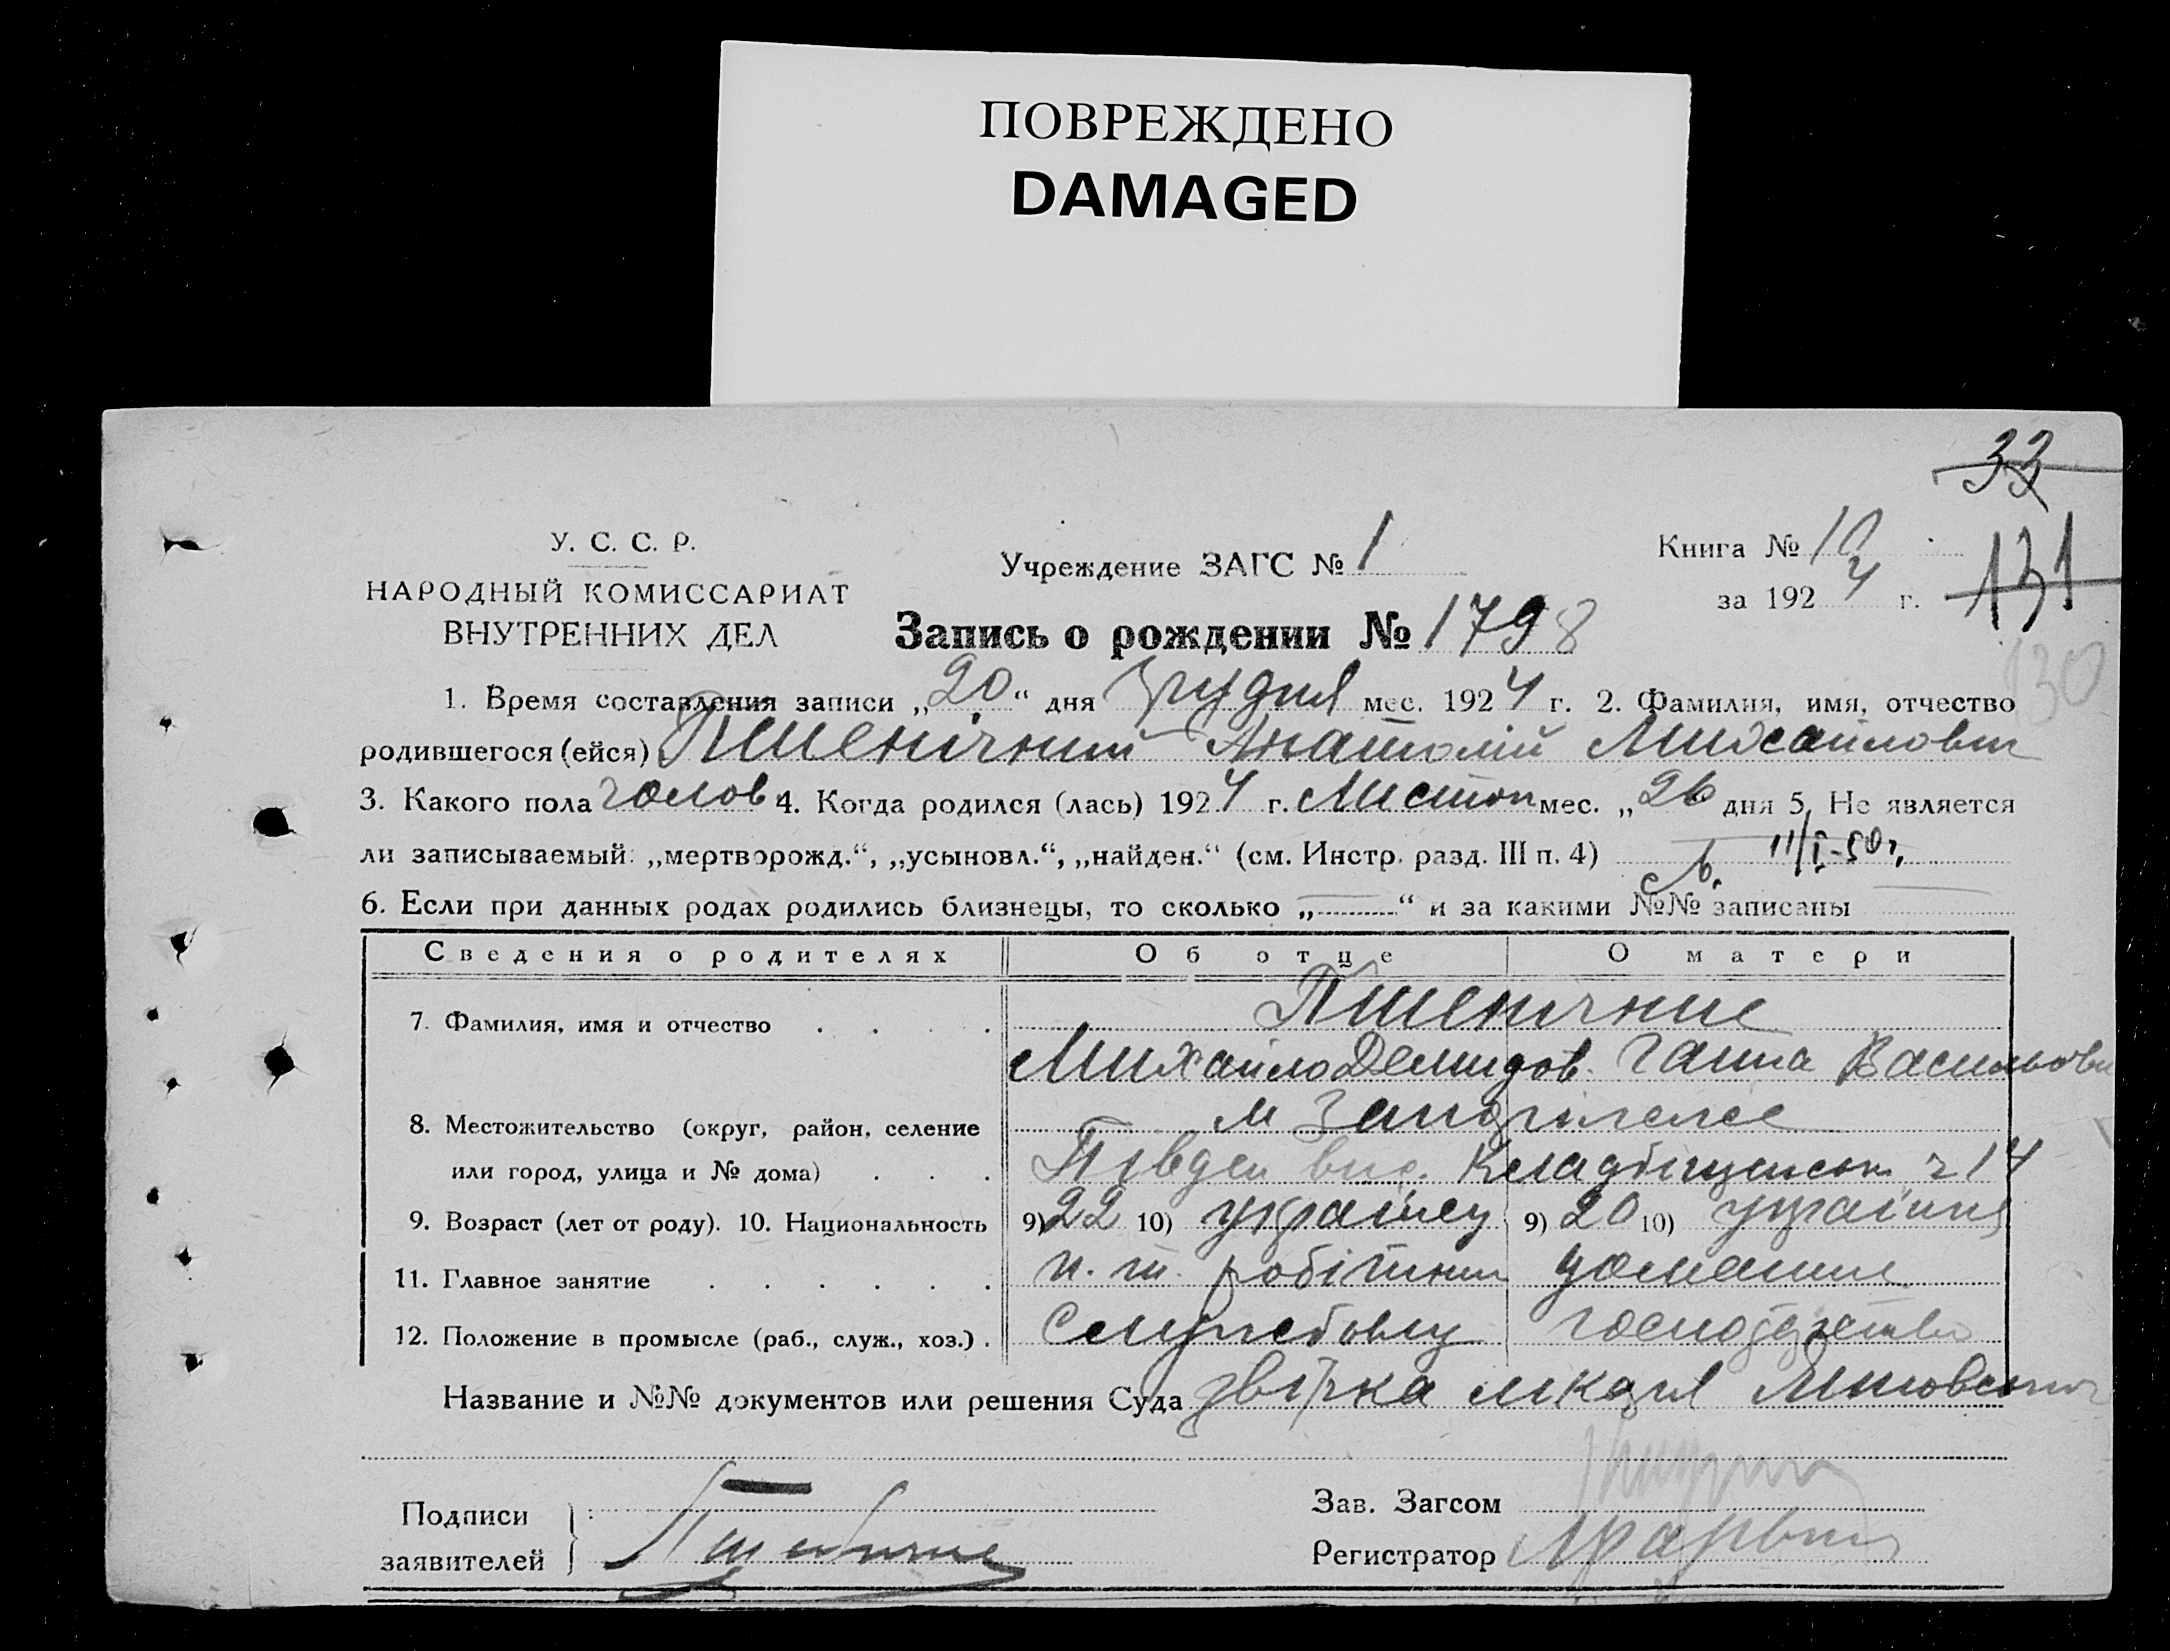 ПОВРЕЖДЕНО
DAMAGED
33
У. С. С. Р.
НАРОДНЫЙ КОМИССАРИАТ
ВНУТРЕННИХ ДЕЛ
Учреждение ЗАГС № 1
Книга № 10
за 1924 г.
131
130
Запись о рождении № 1798
1. Время составления записи „20“ дня Грудня мес. 1924 г. 2. Фамилия, имя, отчество
родившегося (ейся) Пшенічний Анатолій Михайлович
3. Какого пола голов. 4. Когда родился (лась) 1924 г. Листоп мес. „26 дня 5. Не является
ли записываемый: „мертворожд.“, „усыновл.“, „найден.“ (см. Инстр. разд. III п. 4)
11/I-50 г.
6. Если при данных родах родились близнецы, то сколько „ “ и за какими №№ записаны
Сведения о родителях Об отце О матери
7. Фамилия, имя и отчество Пшенічние
Михайло Демидов. Ганна Васильовн
8. Местожительство (округ, район, селение м
или город, улица и № дома) Південн вис. Кладбіщенськ ч 14
9. Возраст (лет от роду). 10. Национальность 9) 22 10) українец 9) 20 10) україн
11. Главное занятие робітник домашнє
12. Положение в промысле (раб., служ., хоз.) господарство
Название и №№ документов или решения Суда довідка лікаря
Подписи
заявителей
Зав. Загсом
Регистратор